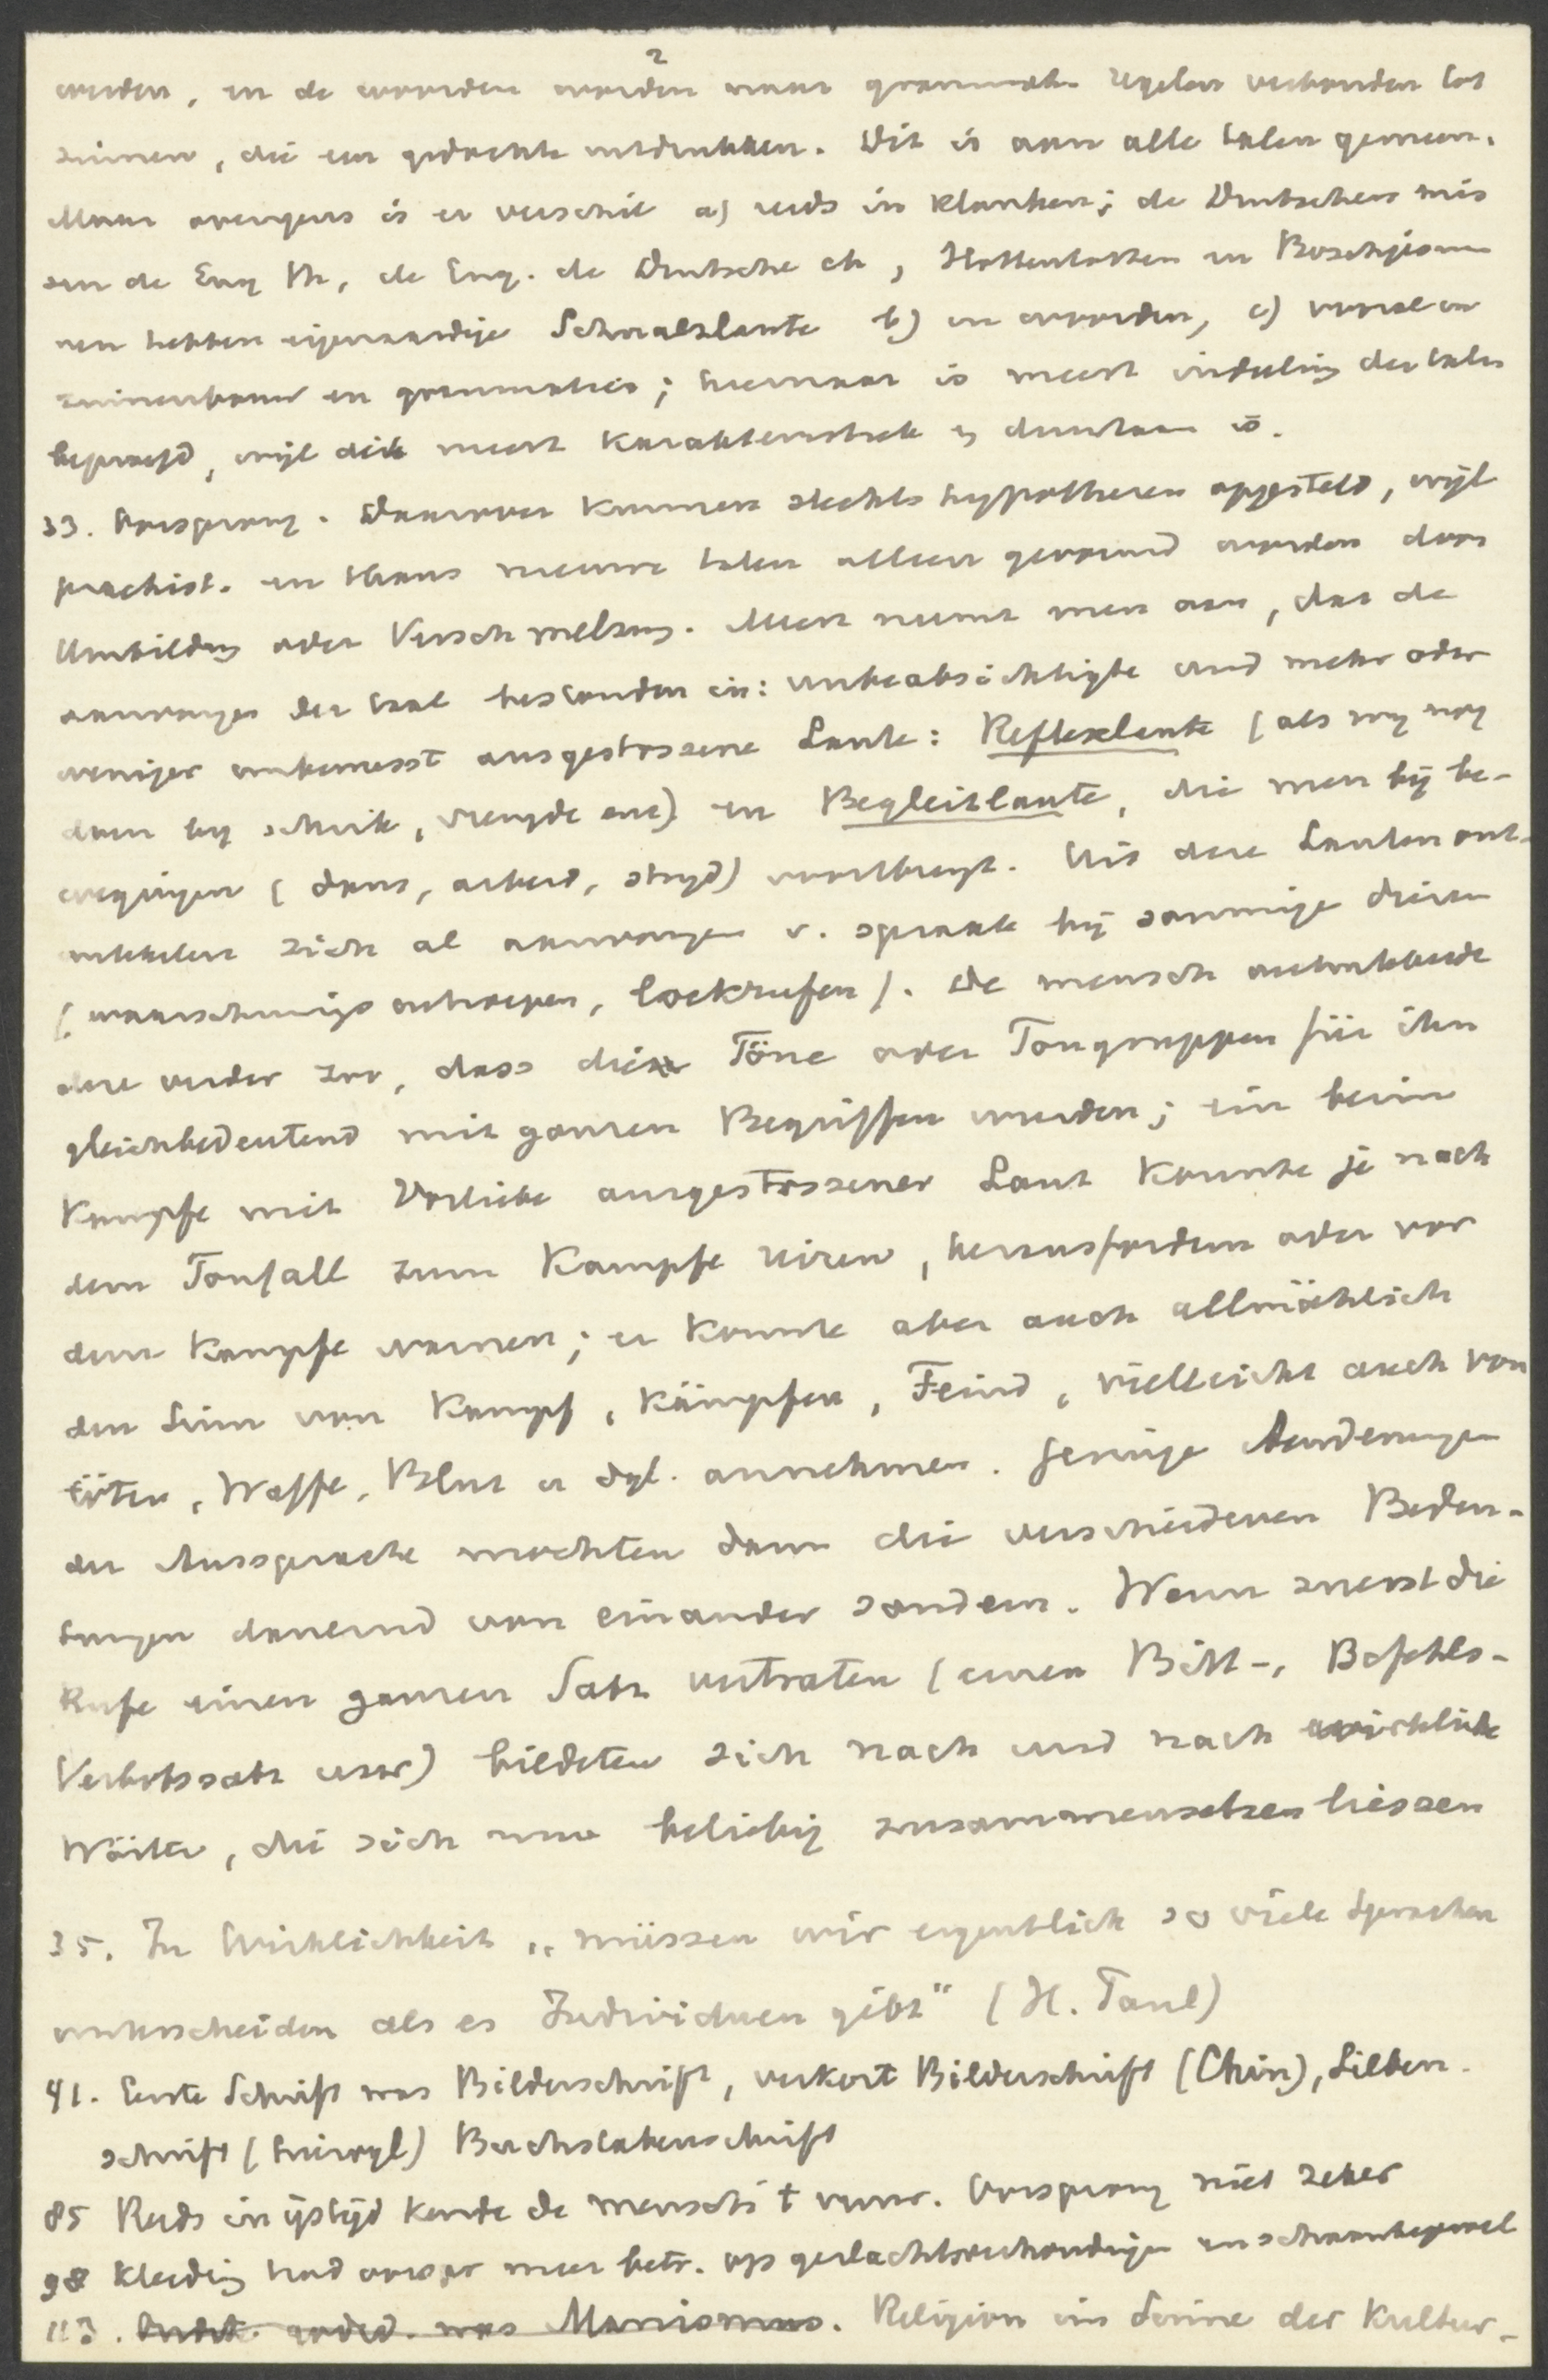 2
worden, en de woorden worden naar grammat. regelen verbonden tot
zinnen, die een gedachte uitdrukken. Dit is aan alle talen gemeen.
Maar overigens is er verschil a) reeds in klanken; de Duitschers mis
sen de Eng th, de Eng. de Duitsche ch, Hottentotten en Boschjesman
nen hebben eigenaardige Schnalzlaute b) in woorden, c) vooral in
zinnenbouw en grammatica; hiernaar is meest indeeling der talen
beproefd, wijl dit meest karakteristiek en duurzaam is.
33. Oorsprong. Daarover kunnen slechts hypothesen opgesteld, wijl
praehist. en thans nieuwe talen alleen gevormd worden door
Umbildung oder Verschmelzung. Meest neemt men aan, dat de
aanvangen der taal bestonden in: unbeabsichtigte und mehr oder
weniger unbewusst ausgestossene Laute: Reflexlaute (als wij nog
doen bij schrik, vreugde enz) en Begleitlaute, die men bij be-
wegingen (dans, arbeid, strijd) voortbrengt. Uit deze Lauten ont-
wikkelen zich al aanvangen v. spraak bij sommige dieren
(waarschuwings, lockrufen). De mensch ontwikkelde
deze verder zoo, dass diese Töne oder Tongruppen für ihn
gleichbedeutend mit ganzen Begriffen wurden; ein beim
Kampfe mit Vorliebe ausgestossener Laut konnte je nach
dem Tonfall zum Kampfe reizen, herausfordern oder vor
dem Kampfe warnen; er konnte aber auch allmählich
den Sinn von Kampf, kämpfen, Feind, vielleicht auch von
töten, Waffe, Blut u dgl. annehmen. Geringe Aenderungen
der Aussprache mochten dann die verschiedenen Bedeu-
tungen dauernd von einander sondern. Wenn zuerst die
Rufe einen ganzen Satz vertraten (einen Bitt-, Befehls-
Verbotssatz usw) bildeten sich nach und nach wirkliche
Wörter, die sich nun beliebig zusammensetzen liessen
35. In Wirklichkeit „müssen wir eigentlich so viele Sprachen
unterscheiden als es Individuen gibt" (H. Paul)
41. Eerste Schrift was Bilderschrift, verkort Bilderschrift (Chin), Silben-
schrift (hierogl) Buchstabenschrift
85 Reeds in ijstijd kende de mensch 't vuur. Oorsprong niet zeker
98 Kleeding had oorspr meer betr. op geslachtsverhoudingen en schaamtegevoel
113. was Manismus. Religion im Sinne der Kultur-